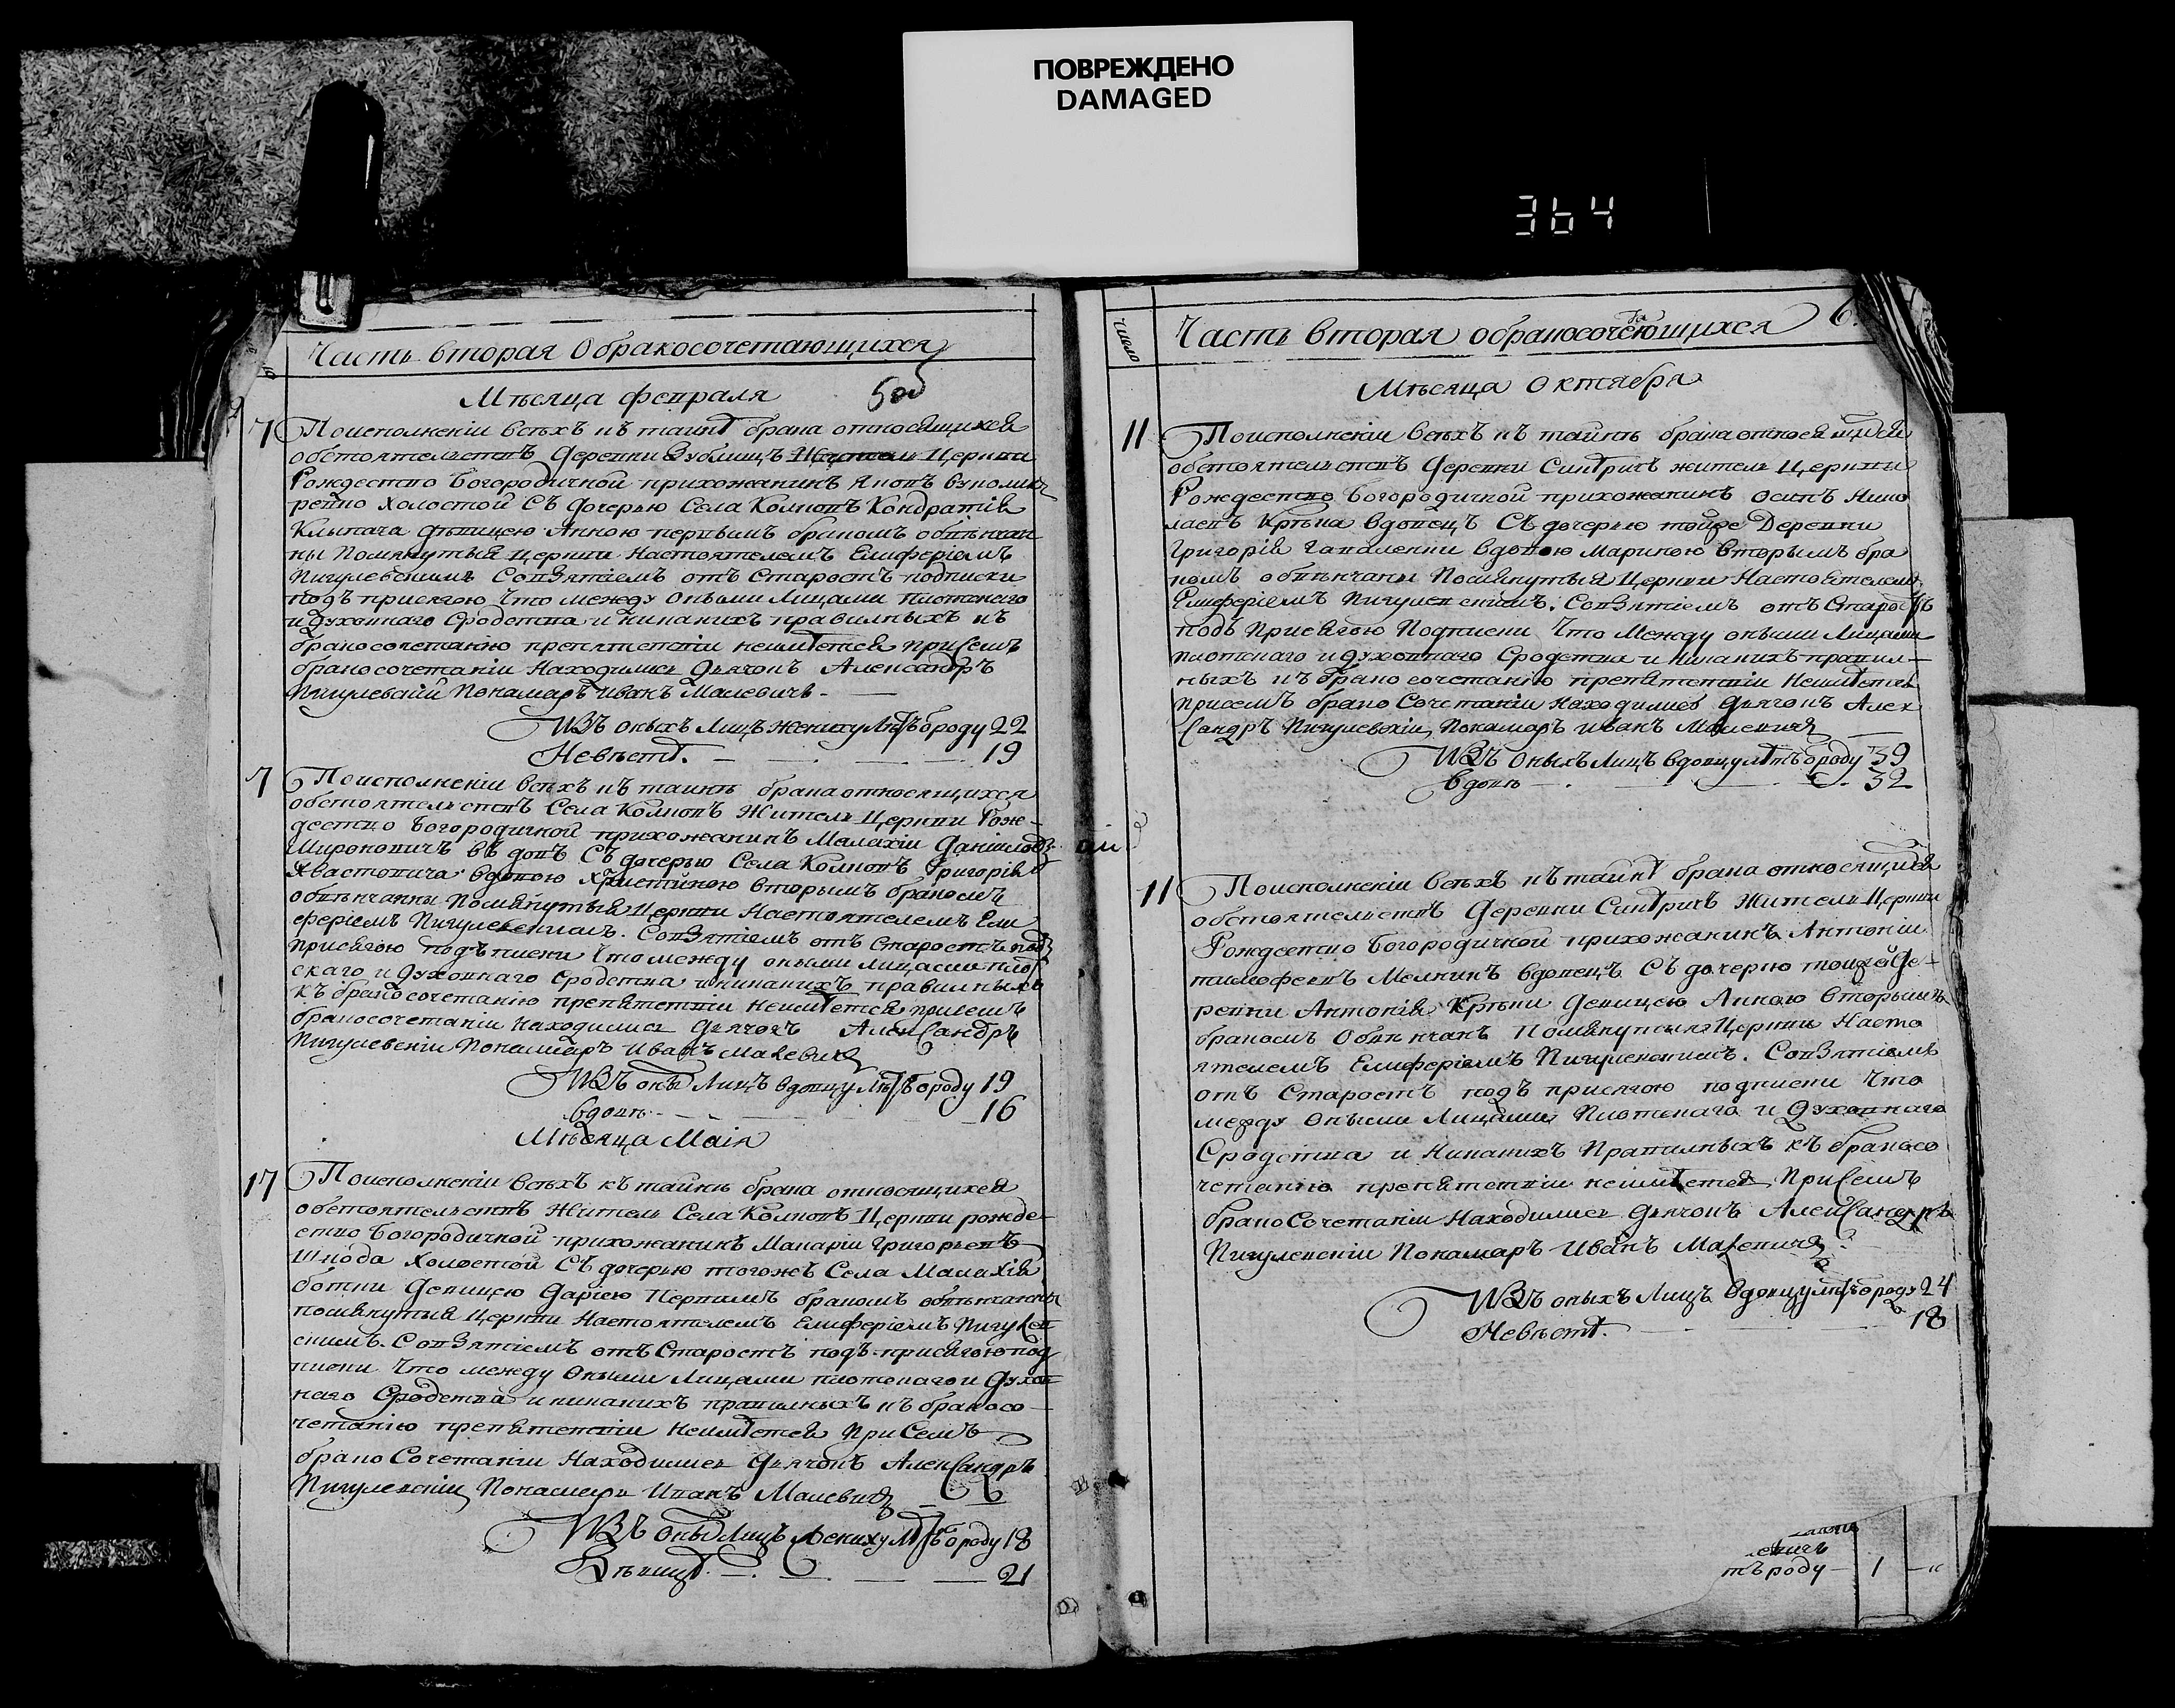 ПОВРЕЖДЕНО
DAMAGED
364
Часть вторая О бракосочетающихся
Мѣсяца февраля
5об
7 По исполненіи всѣхъ къ таинѣ брака относящихся
обстоятельствъ Деревни Зублищъ Церкви
Рождество Богородичной прихожанинъ Яковъ
холостой Съ дочерью Села Колковъ Кондратія
Клыпача дѣвицею Анною первымъ бракомъ обвѣнчан
ны Помянутыя Церкви Настоятелемъ Елиферіемъ
Пигулевскимъ Совзятіемъ отъ Старостъ подписки
подъ присягою Что между оными Лицами плотскаго
и духовнаго Сродства и никакихъ правилныхъ къ
бракосочетанію препятствіи неимѣется присемъ
бракосочетаніи Находились Дьячокъ Александръ
Пигулевскій Понамаръ Иванъ Малевичъ
ИЗЪ оныхъ Лицъ жениху Лѣтъ ѿроду 22
Невѣстѣ. 19
7 По исполненіи всѣхъ къ таинѣ брака относящихся
обстоятельствъ Села Колковъ Житель Церкви Рож-
дество Богородичной прихожанинъ Малахіи Данилов
Широковичъ вдовъ Съ дочерью Села Колковъ Григорія
Хвастовича вдовою Христиною вторымъ бракомъ
обвѣнчанны Помянутыя Церкви Настоятелемъ Ели
феріемъ Пигулевскимъ. Совзятіемъ отъ Старостъ подъ
Присягою подъписки Что между оными лицами плот
скаго и духовнаго Сродства и никакихъ правилныхъ
къ бракосочетанію препятствіи неимѣется присемъ
бракосочетаніи Находились Дьячокъ Александръ
Пигулевскіи Понамаръ Иванъ Малевичъ
ИЗЪ оных Лицъ вдовцу Лѣтъ ѿроду 19
вдовѣ 16
Мѣсяца Маія
17 По исполненіи всѣхъ къ таинѣ брака относящихся
обстоятельствъ Житель Села Колковъ Церкви рожде-
ство Богородичной прихожанинъ Макаріи Григорьевъ
Шкода Холостой Съ дочерью тогожъ Села Малахія
Ботки Девицею Дарією Первимъ бракомъ обвѣнчанны
помянутыя Церкви Настоятелемъ Елиферіемъ Пигулев
скимъ. Совзятіемъ отъ Старостъ подъ присягою под
писки Что между Оными Лицами плотскаго и Духов
наго Сродства и никакихъ правилныхъ къ бракосо-
четанію препятствіи Неимѣется При Семъ
брако Сочетаніи Находились Дьячокъ Александръ
Пигулевскіи Понамаръ Иванъ Малевичъ
ИЗЪ оных Лицъ Жениху Лѣтъ ѿроду 18
Дѣвицѣ. 21
число
Часть вторая о бракосочетающихся 6.
Мѣсяца Октября
11 По исполненіи всѣхъ къ таинѣ брака относящихся
обстоятельствъ Деревни Ситричъ житель Церкви
Рождество Богородичной прихожанинъ Осипъ Нико
лаевъ Крѣка вдовецъ Съ дочерью тойже Деревни
Григорія Гапаленки вдовою Мариною вторымъ бра
комъ обвѣнчаны Помянутыя Церкви Настоятелемъ
Елиферіемъ Пигулевскимъ. Совзятіемъ отъ Старостъ
подъ Присягою Подписки Что Между оными Лицами
плотскаго и духовнаго Сродства и Никакихъ правил-
ныхъ къ брако сочетанію препятствіи Неимѣется
присемъ брако Сочетаніи Находились Дьячокъ Алек
Сандръ Пигулевскіи Понамаръ Иванъ Малевичъ
ИЗЪ Оныхъ Лицъ вдовцу лѣтъ ѿроду 39
вдовѣ 32
11 По исполненіи всѣхъ къ таинѣ брака относящихся
обстоятельствъ Деревни Ситричъ Житель Церкви
Рождество Богородичной прихожанинъ Антоніи
тимофеевъ Мелникъ вдовецъ Съ дочерью тойже Де-
ревни Антонія Крѣки Девицею Анною Вторымъ
бракомъ Обвѣнчанъ Помянутыя Церкви Насто
ятелемъ Елиферіемъ Пигулевскимъ. Совзятіемъ
отъ Старостъ подъ присягою подписки Что
между Оными Лицами Плотскаго и Духовнаго
Сродства и Никакихъ Правилныхъ къ бракосо
четанію препятствіи неимѣется При Семъ
брако Сочетаніи Находились Дьячокъ АлекСандръ
Пигулевскіи Понамаръ Иванъ Малевичъ
ИЗЪ оныхъ Лицъ вдовцу лѣтъ ѿроду 24
Невѣстѣ. 18
тъ роду 1